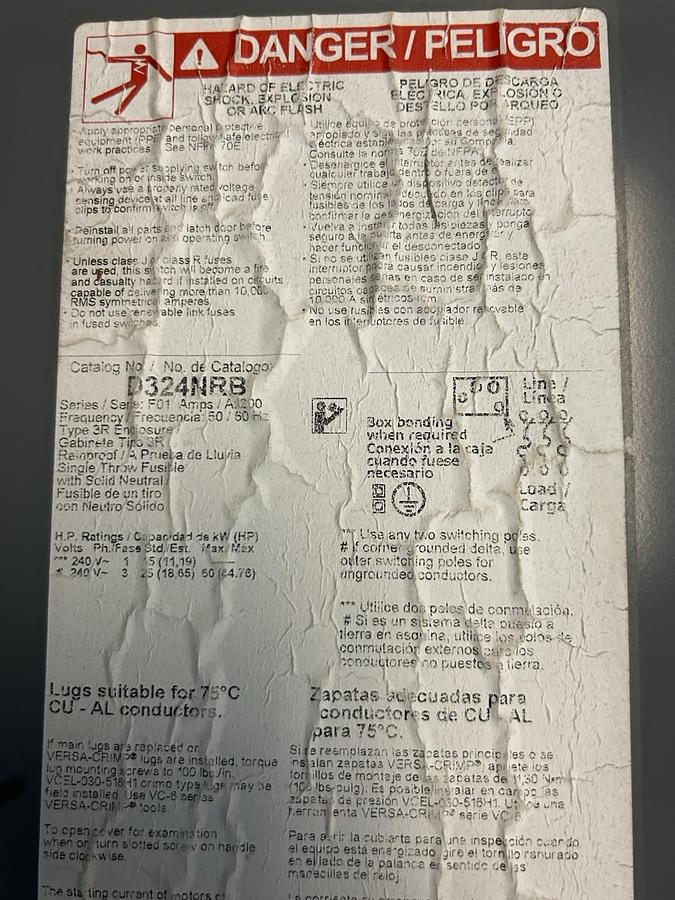 DANGER / PELIGRO
HAZARD OF ELECTRIC
SHOCK, EXPLOSION
OR ARC FLASH
Apply appropriate personal protective
equipment (PPE) and follow safe electrical
work practices. See NFPA 70E.
· Turn off power supplying switch before
working on or inside switch.
· Always use a properly rated voltage
sensing device at all line and load fuse
clips to confirm switch is off.
· Reinstall all parts and latch door before
turning power on and operating switch.
· Unless class J or class R fuses
are used, this switch will become a fire
and casualty hazard if installed on circuits
capable of delivering more than 10,000
RMS symmetrical amperes.
· Do not use renewable link fuses
in fused switches.
PELIGRO DE DESCARGA
ELÉCTRICA, EXPLOSIÓN O
DESTELLO POR ARQUEO
Utilice equipo de protección personal (EPP)
apropiado y siga las prácticas de seguridad
eléctrica establecidas por su Compañía.
Consulte la norma 70E de NFPA.
· Desenergice el interruptor antes de realizar
cualquier trabajo dentro o fuera de él.
· Siempre utilice un dispositivo detector de
tensión nominal adecuado en los clips para
fusibles de los lados carga y línea para
confirmar la desenergización del interruptor.
· Vuelva a instalar todas las piezas y ponga
seguro a la puerta antes de energizar y
hacer funcionar el desconectador.
· Si no se utilizan fusibles clase J o R, este
interruptor podrá causar incendio y lesiones
personales serias en caso de ser instalado en
circuitos capaces de suministrar más de
10,000 A simétricos rcm.
· No use fusibles con acoplador renovable
en los interruptores de fusible.
Catalog No / No. de Catalogo:
D324NRB
Series / Serie: F01 Amps / A: 200
Frequency / Frecuencia: 50 / 60 Hz
Type 3R Enclosure
Gabinete Tipo 3R
Rainproof / A Prueba de Lluvia
Single Throw Fusible
with Solid Neutral
Fusible de un tiro
con Neutro Sólido
Box bonding
when required
Conexión a la caja
cuando fuese
necesario
Line /
Línea
Load /
Carga
H.P. Ratings / Capacidad de kW (HP)
Volts Ph./Fase Std./Est. Max./Máx
*** 240 V~ 1 15 (11,19) ——
# 240 V~ 3 25 (18,65) 60 (44.76)
*** Use any two switching poles.
# If corner grounded delta, use
outer switching poles for
ungrounded conductors.
*** Utilice dos polos de conmutación.
# Si es un sistema delta puesto a
tierra en esquina, utilice los polos de
conmutación externos para los
conductores no puestos a tierra.
Lugs suitable for 75°C
CU - AL conductors.
If main lugs are replaced or
VERSA-CRIMP® lugs are installed, torque
lug mounting screws to 100 lbs./in.
VCEL-030-516H1 crimp type lugs may be
field installed. Use VC-6 series
VERSA-CRIMP® tools.
To open cover for examination
when on, turn slotted screw on handle
side clockwise.
The starting current of motors of
Zapatas adecuadas para
conductores de CU - AL
para 75°C.
Si se reemplazan las zapatas principales o se
instalan zapatas VERSA-CRIMP® apriete los
tornillos de montaje de las zapatas de 11,30 N•m
(100 lbs-pulg). Es posible instalar en campo las
zapatas de presión VCEL-030-516H1. Utilice una
herramienta VERSA-CRIMP® serie VC-6.
Para abrir la cubierta para una inspección cuando
el equipo está energizado, gire el tornillo ranurado
en el lado de la palanca en sentido de las
manecillas del reloj.
La corriente